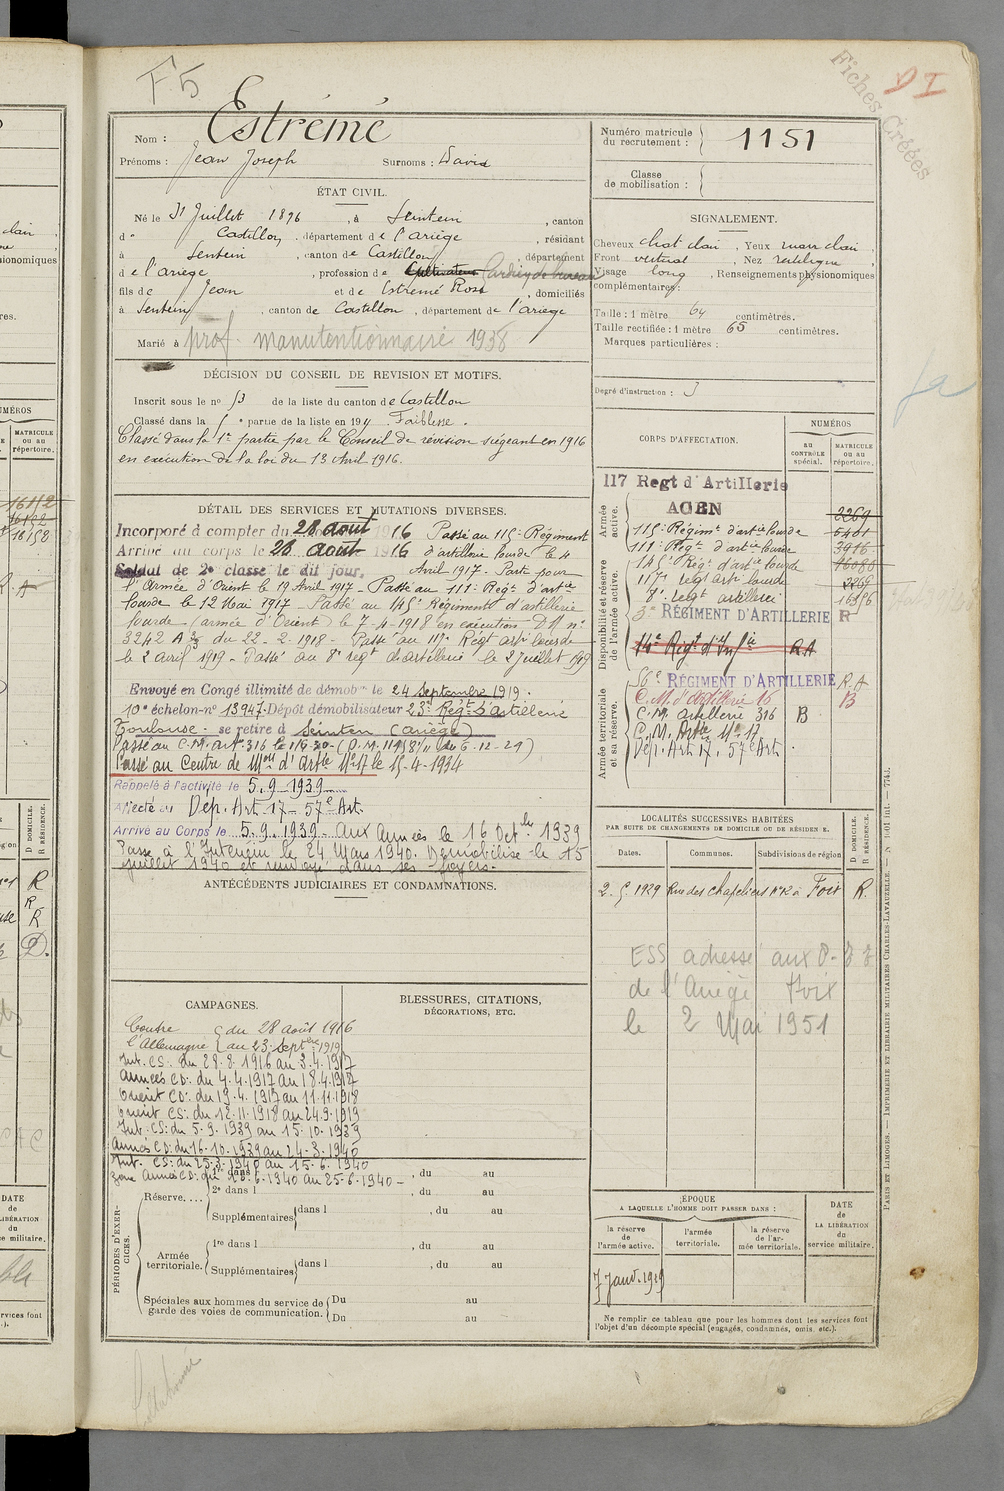 F5
Fiches Créées
Nom : Estrémé
Prénoms : Jean Joseph Surnoms : David
Numéro matricule du recrutement : 1151
Classe de mobilisation :
ÉTAT CIVIL.
Né le 31 Juillet 1896, à Sentein, canton
de Castillon, département de l'ariège, résidant
à Sentein, canton de Castillon, département
de l'ariège, profession de Cultivateur
fils de Jean et de Estremé Rose, domiciliés
à Sentein, canton de Castillon, département de l'ariège
Marié à
prof. manutentionnaire 1938
SIGNALEMENT.
Cheveux chat clair, Yeux marr clair,
Front vertical, Nez rectiligne,
Visage long, Renseignements physionomiques
complémentaires :
Taille : 1 mètre 64 centimètres.
Taille rectifiée : 1 mètre 65 centimètres.
Marques particulières :
Degré d'instruction : 3
DÉCISION DU CONSEIL DE REVISION ET MOTIFS.
Inscrit sous le no 53 de la liste du canton de Castillon
Classé dans la 5e partie de la liste en 191 Faiblesse.
Classé dans la 1e partie par le Conseil de révision siégeant en 1916
en exécution de la loi du 13 Avril 1916.
DÉTAIL DES SERVICES ET MUTATIONS DIVERSES.
Incorporé à compter du 28 août 1916 Passé au 115e Régiment
Arrivé au corps le 28 août 1916 d'artillerie lourde le 4
Soldat de 2e classe le dit jour. Avril 1917 - Parti pour
l'Armée d'Orient le 19 Avril 1917 - Passé au 111e Régt d'artie
lourde le 12 Mai 1917 - Passé au 145e Régiment d'artillerie
lourde (armée d'Orient) le 7-4-1918 en exécution DM no
3242 A 3/3 du 22-2-1918 - Passé au 117e Régt arti lourde
le 2 avril 1919 - Passé au 8e regt d'artillerie le 27 juillet 1919
Envoyé en Congé illimité de démobon le 24 Septembre 1919.
10e échelon - no 13947 Dépôt démobilisateur 23e Régt d'artillerie
Toulouse - se retire à Seintein (Ariège)
Passé au C.M. art. 316 le 1-6-30 - (D.M. 11981 du 6-12-29)
Passé au Centre de Mon d'Artie No 17 le 15-4-1934
Rappelé à l'activité le 5.9.1939
Affecté au Dép. Art 17 - 57e Art.
Arrivé au Corps le 5.9.1939 - aux Armées le 16 Octbre 1939
Passé à l'Intérieur le 24 Mars 1940. Démobilisé le 15
juillet 1940 et renvoyé dans ses foyers -
CORPS D'AFFECTATION.
NUMÉROS
AU CONTRÔLE SPÉCIAL.
MATRICULE ou au répertoire.
Armée active.
117 Regt d'Artillerie
AGEN 2269
115e Régimt d'artie lourde 5401
111e Régt d'artie lourde 3916
145e Régt d'artie lourde 16080
117e régt arti lourde 2269
Disponibilité et réserve de l'armée active.
regt artillerie 16396
3e RÉGIMENT D'ARTILLERIE R
14e Régt d'Infie RA
56e RÉGIMENT D'ARTILLERIE R.A
Armée territoriale et sa réserve.
C.M. d'Artillerie 16 B
C.M. artillerie 316 B
C.M. Artie No 17
Dép. Art 17, 57e Art.
LOCALITÉS SUCCESSIVES HABITÉES
PAR SUITE DE CHANGEMENTS DE DOMICILE OU DE RÉSIDENCE.
Dates. Communes. Subdivisions de région
D. DOMICILE. R. RÉSIDENCE.
2.5.1929 Rue des Chapeliers No 12 à Foix R.
ESS adresse aux
de l'Ariège Foix
le 2 Mai 1951
ANTÉCÉDENTS JUDICIAIRES ET CONDAMNATIONS.
CAMPAGNES.
Contre du 28 août 1916
l'Allemagne au 23 septbre 1919
Int. CS. du 28.8.1916 au 3.4.1917
Armées CD. du 4.4.1917 au 18.4.1917
Orient CD. du 19.4.1917 au 11.11.1918
Orient CS. du 12.11.1918 au 24.9.1919
Int. CS. du 5.9.1939 au 15.10.1939
Armées CD. du 16.10.1939 au 24.3.1940
Int. CS. du 25.3.1940 au 15.6.1940
Zone Armées CD. du 16.6.1940 au 25.6.1940 -
BLESSURES, CITATIONS, DÉCORATIONS, ETC.
PÉRIODES D'EXERCICES.
Réserve....
1re dans l , du au
2e dans l , du au
Supplémentaires dans l , du au
Armée territoriale.
1re dans l , du au
Supplémentaires dans l , du au
Spéciales aux hommes du service de garde des voies de communication.
Du au
Du au
ÉPOQUE
A LAQUELLE L'HOMME DOIT PASSER DANS :
la réserve de l'armée active.
l'armée territoriale.
la réserve de l'armée territoriale.
DATE de LA LIBÉRATION du service militaire.
7 janv. 1939
Ne remplir ce tableau que pour les hommes dont les services font
l'objet d'un décompte spécial (engagés, condamnés, omis, etc.).
PARIS ET LIMOGES. — IMPRIMERIE ET LIBRAIRIE MILITAIRES CHARLES-LAVAUZELLE.